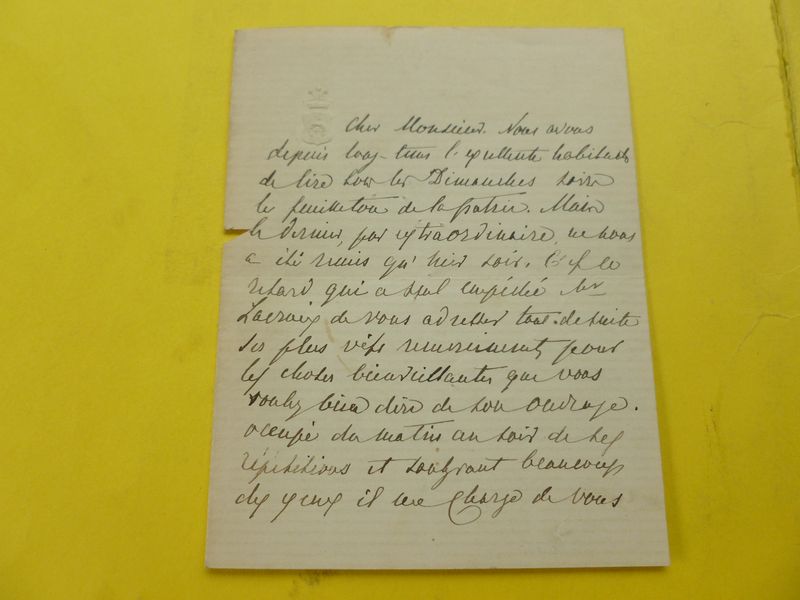 Cher Monsieur. Nous avons
depuis long-tems l'excellente habitude
de lire tous les Dimanches soirs
le feuilleton de la Patrie. Mais
le dernier, par extraordinaire, ne nous
a été remis qu'hier soir. C'est ce
retard qui a seul empêché Mr
Lacroix de vous adresser tout-de-suite
ses plus vifs remerciments pour
les choses bienveillantes que vous
voulez bien dire de son ouvrage.
occupé du matin au soir de ses
répétitions et souffrant beaucoup
des yeux il me charge de vous